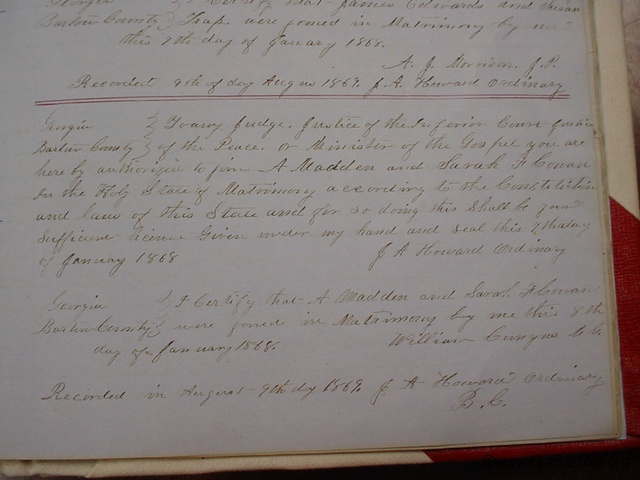 Georgia } I Certify that James Edwards and Susan
Bartow County } Trap. were joned in Matrimony by me
this 7th day of January 1868.
A. J. Morrison J. P.
Recorded 9th of day Augus 1869 J. A. Howard Ordinary
Georgia } To any Judge, Justice of the Inferior Court Justice
Bartow County } of the Peace. or Minister of the Gospel you are
here by authorized to join A Madden and Sarah F Cowan
In the Holy State of Matrimony according to the Constitution
and laws of this State and for so doing this Shall be your
Sufficient license Given under my hand and seal this 7th day
of January 1868 J A Howard Ordinary
Georgia } I Certify that A Madden and Sarah F Cowan
Bartow County } were joned in Matrimony by me this 8th
day of January 1868. William
Recorded in August 9th dy 1869 J A Howard Ordinary
B. C.